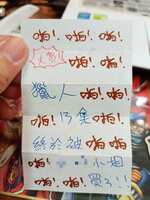 啪!啪!啪!
啪!啪!
獵人啪!啪!
啪!13集啪!
終於被啪!啪!
啪!小週
啪!啪!買了!!